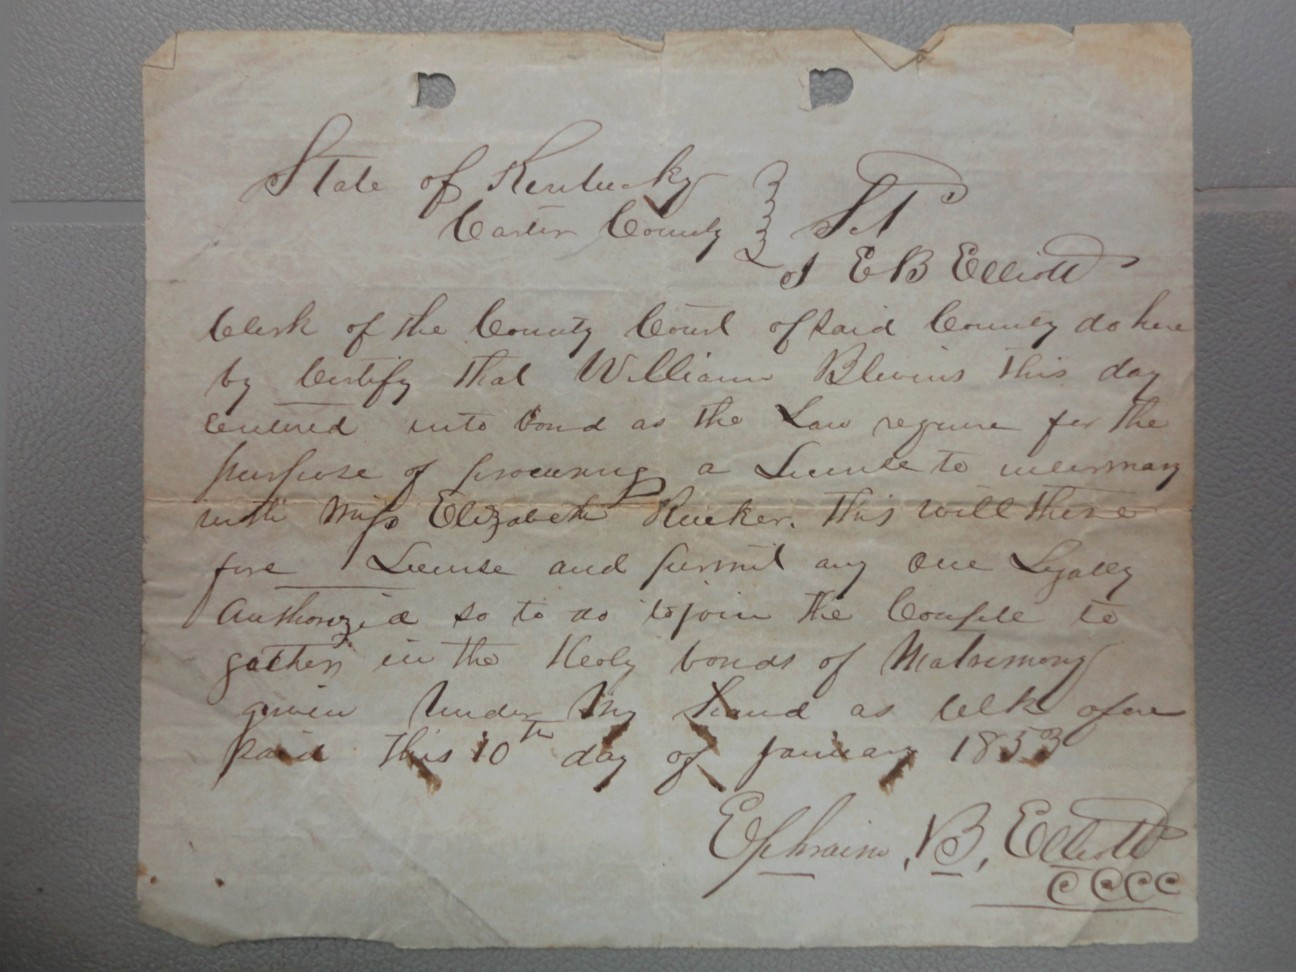 State of Kentucky
Carter County } Sct
I E B Elliott
Clerk of the County Court of said County do here
by Certify that William Blevins this day
Entered into bond as the Law require for the
purpose of procuring a License to intermary
with Miss Elizabeth Rucker. this will there
fore License and permit any One Legally
Authorized so to do to join the Couple to
gather in the Holy bonds of Matrimony
given Under My hand as Clk afore
said this 10th day of January 1853
Ephraim B, Elliott
CCCC